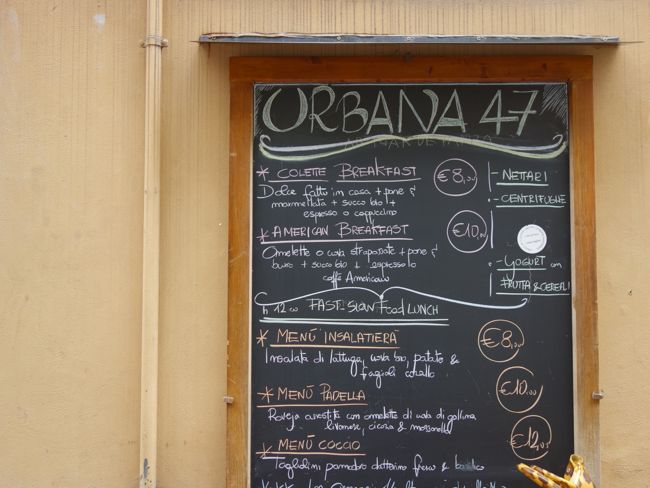 URBANA 47
* COLETTE BREAKFAST €8,00
Dolce fatti in casa + pane &
marmellata + succo bio +
espresso o cappuccino
* AMERICAN BREAKFAST €10,00
Omelette o uova strapazzate + pane &
burro + succo bio + espresso lo
caffè Americano
- NETTARI
- CENTRIFUGHE
- YOGURT con
FRUTTA & CEREALI
h 12:00 FAST&SLOW Food LUNCH
* MENÙ INSALATIERA €8,00
Insalata di lattuga, uova bio, patate &
fagioli corallo
* MENÙ PADELLA €10,00
con omelette di uova di gallina
livornese, cicoria & mozzarella
* MENÙ COCCIO €12,00
Tagliolini pomodoro datterino fresco & basilico